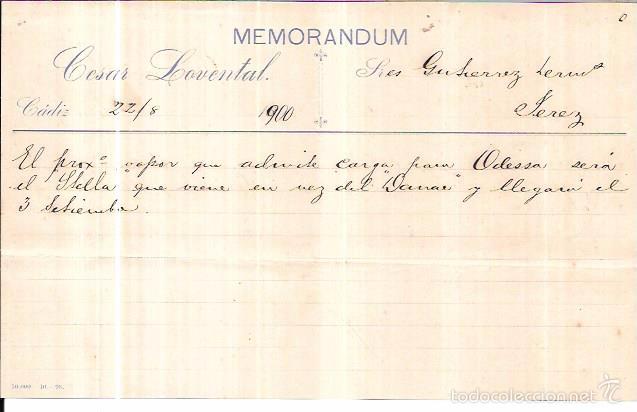 MEMORANDUM
Cesar Lovental.
Sres Gutierrez hermº
Cádiz 22/8 1900
Jerez
El proxº vapor que admite carga para Odessa será
el "Stella" que viene en vez del "Danae" y llegará el
3 Setiembre.
todocoleccion